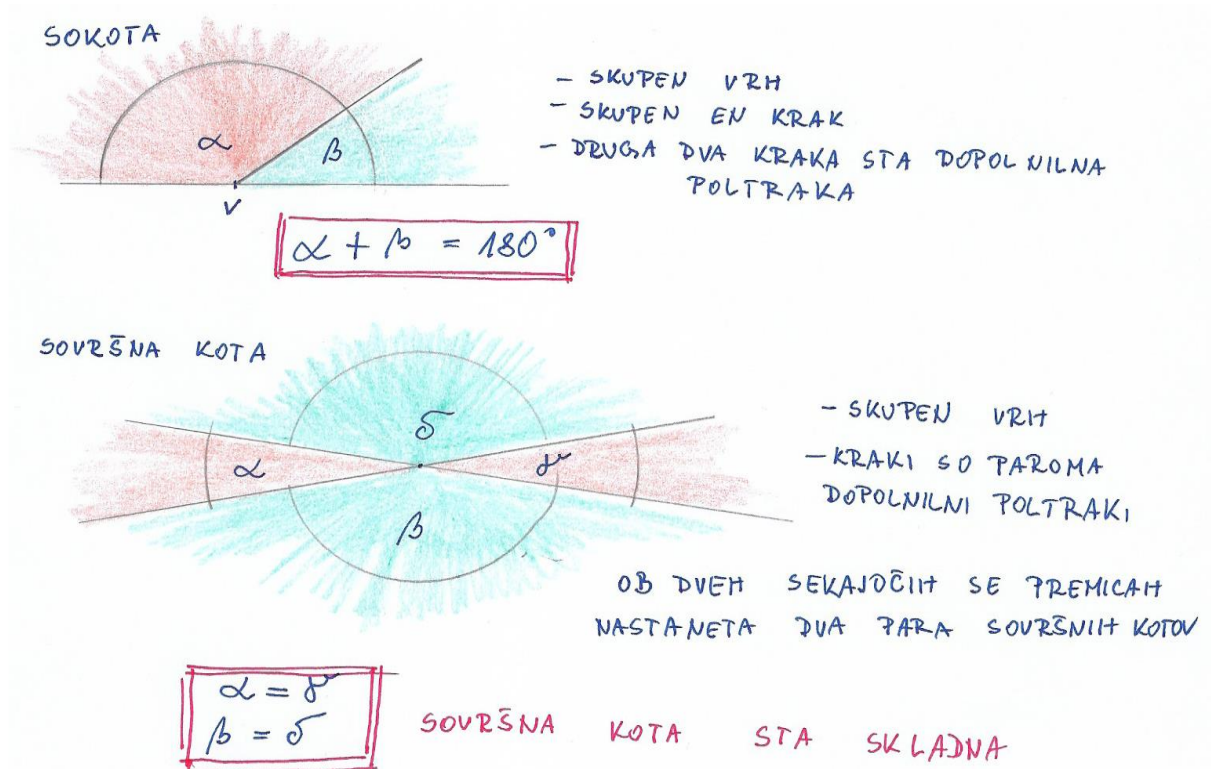 SOKOTA
α
β
V
- SKUPEN VRH
- SKUPEN EN KRAK
- DRUGA DVA KRAKA STA DOPOLNILNA
POLTRAKA
α + β = 180°
SOVRŠNA KOTA
δ
α
γ
β
- SKUPEN VRH
- KRAKI SO PAROMA
DOPOLNILNI POLTRAKI
OB DVEH SEKAJOČIH SE PREMICAH
NASTANETA DVA PARA SOVRŠNIH KOTOV
α = γ
β = δ
SOVRŠNA KOTA STA SKLADNA